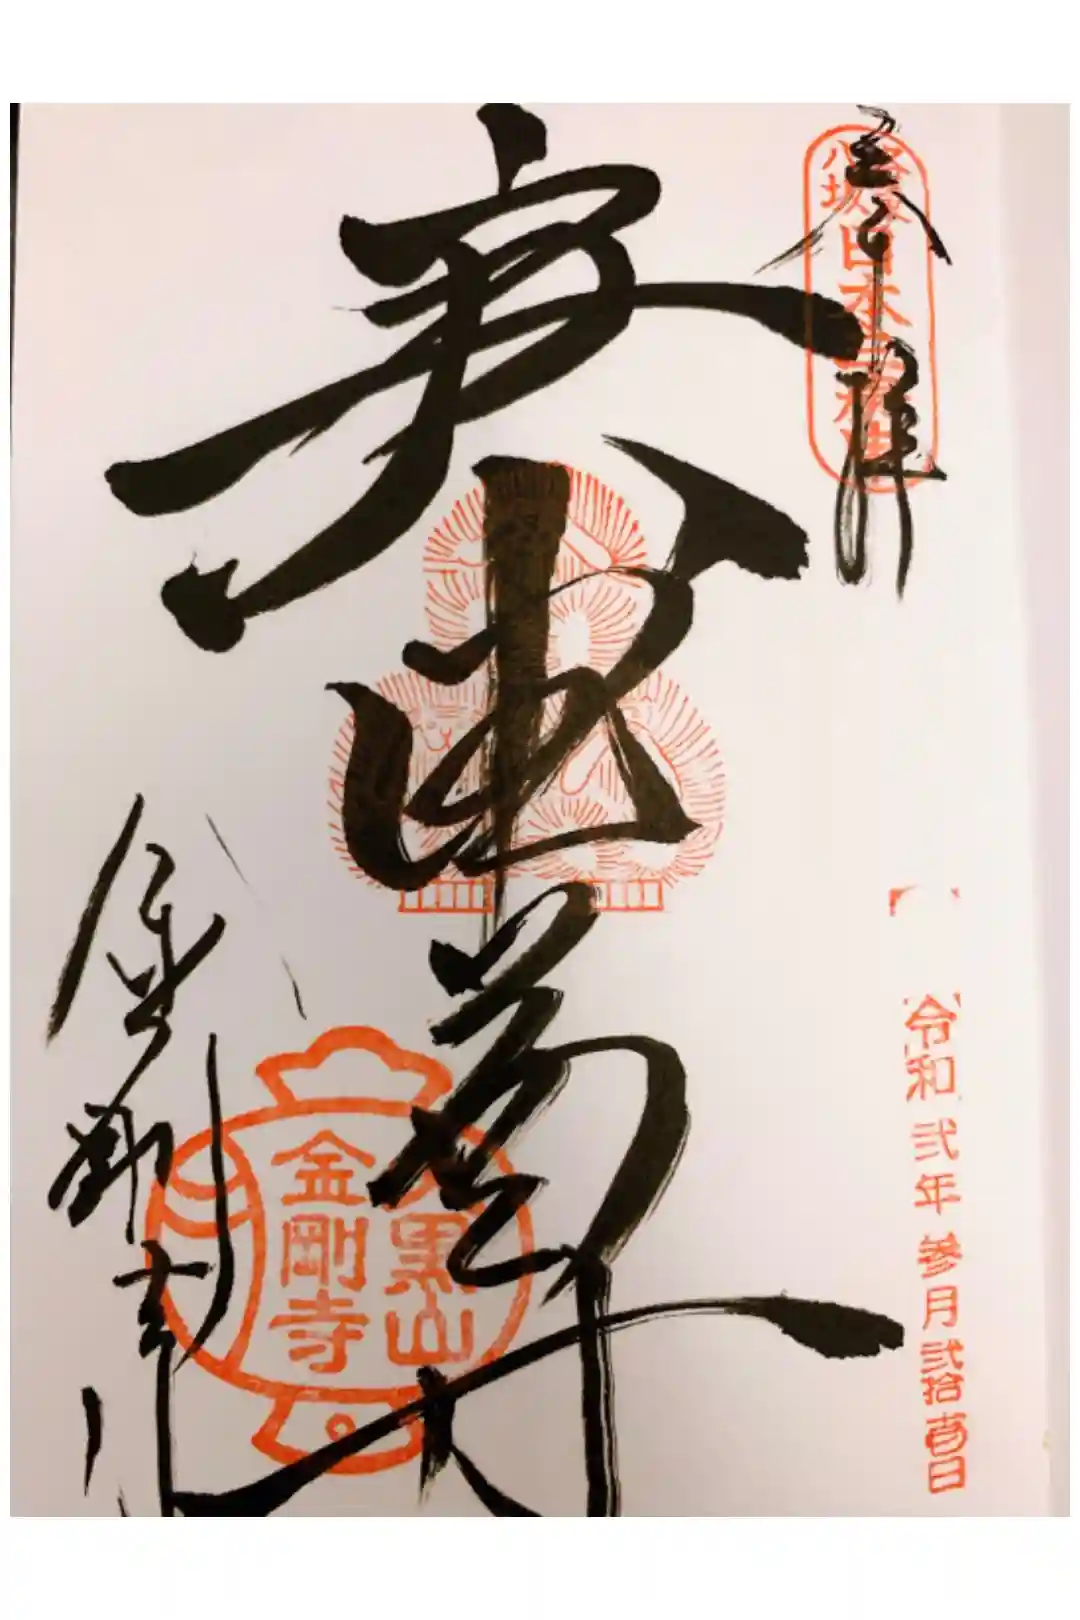 奉拝
八坂
日本三庚申
令和弐年参月弐拾壱日
庚申尊
大黒山
金剛寺
金剛寺